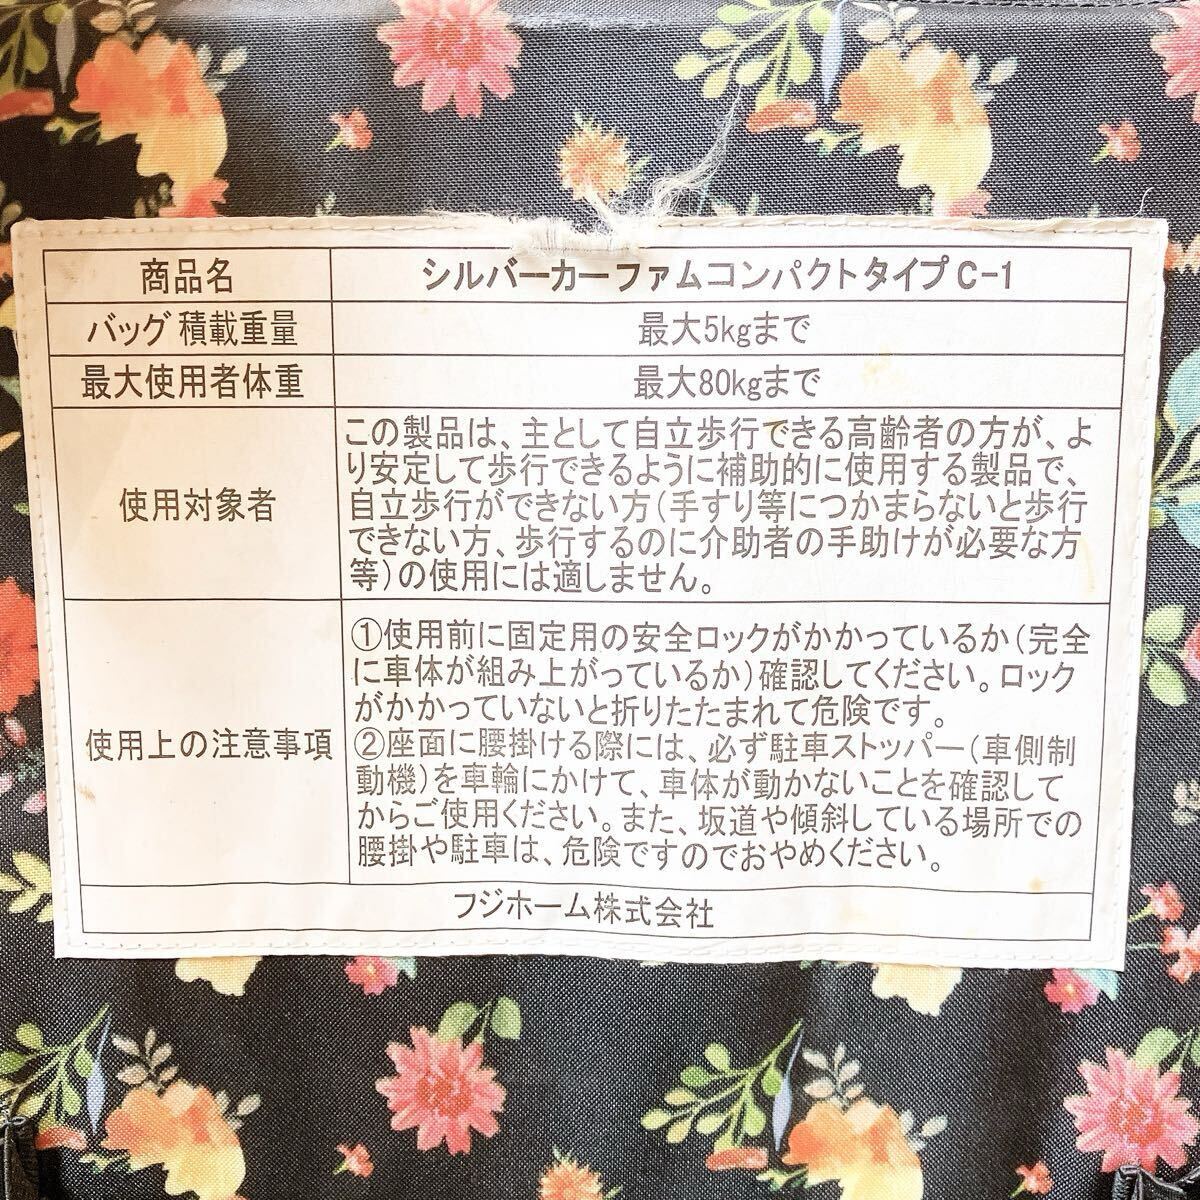 商品名 シルバーカーファムコンパクトタイプC-1
バッグ積載重量 最大5kgまで
最大使用者体重 最大80kgまで
使用対象者
この製品は、主として自立歩行できる高齢者の方が、よ
り安定して歩行できるように補助的に使用する製品で、
自立歩行ができない方(手すり等につかまらないと歩行
できない方、歩行するのに介助者の手助けが必要な方
等)の使用には適しません。
使用上の注意事項
①使用前に固定用の安全ロックがかかっているか(完全
に車体が組み上がっているか)確認してください。ロック
がかかっていないと折りたたまれて危険です。
②座面に腰掛ける際には、必ず駐車ストッパー(車側制
動機)を車輪にかけて、車体が動かないことを確認して
からご使用ください。また、坂道や傾斜している場所での
腰掛や駐車は、危険ですのでおやめください。
フジホーム株式会社